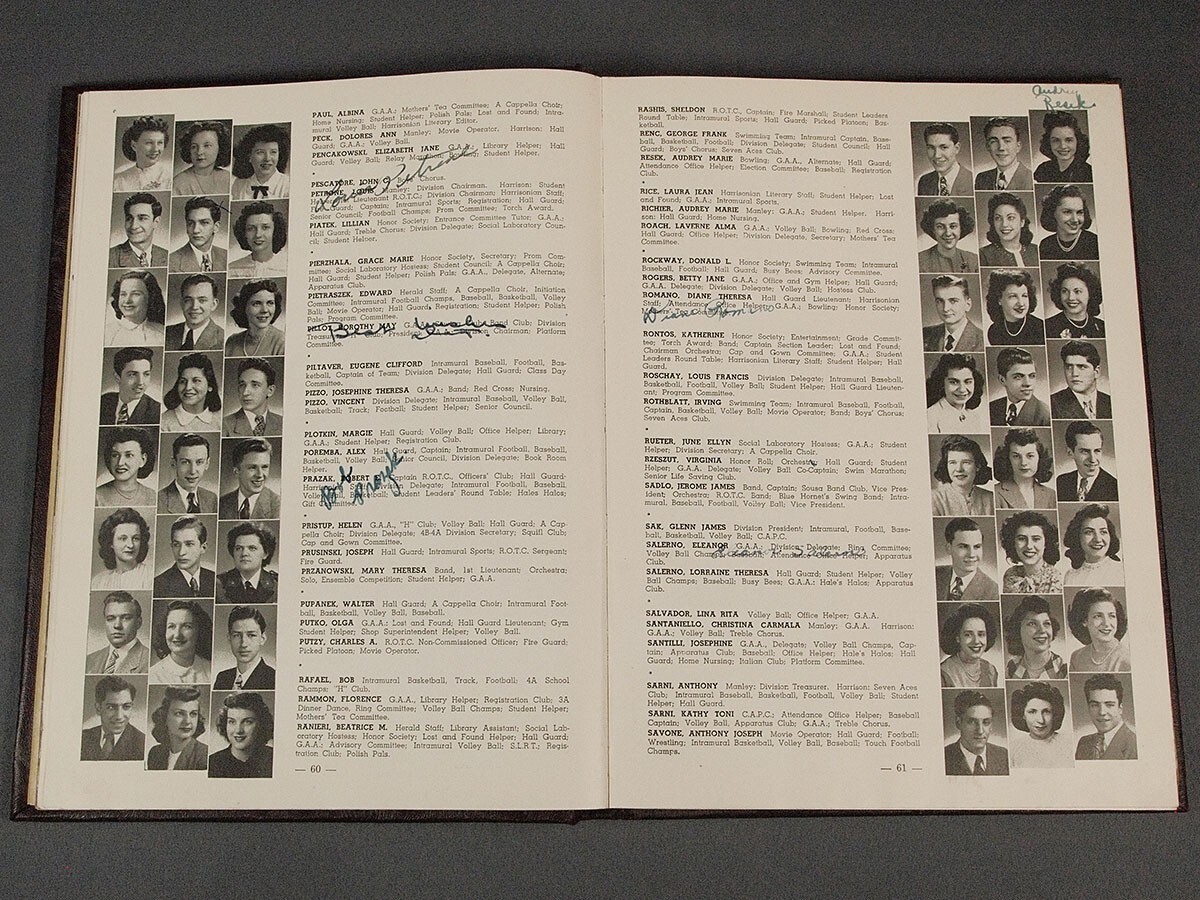 PAUL, ALBINA G.A.A.; Mothers' Tea Committee; A Cappella Choir;
Home Nursing; Student Helper; Polish Pals; Lost and Found; Intra-
mural Volley Ball; Harrisonian Literary Editor.
PECK, DOLORES ANN Manley: Movie Operator. Harrison: Hall
Guard; G.A.A.; Volley Ball.
PENCAKOWSKI, ELIZABETH JANE G.A.A.; Library Helper; Hall
Guard; Volley Ball; Relay Student Helper.
PESCATORE, JOHN Chorus.
PETRONE, LOUIS Manley: Division Chairman. Harrison: Student
Lieutenant R.O.T.C.; Division Chairman; Harrisonian Staff;
Guard; Captain; Intramural Sports; Registration; Hall Guard;
Senior Council; Football Champs; Prom Committee; Torch Award.
PIATEK, LILLIAN Honor Society; Entrance Committee Tutor; G.A.A.;
Hall Guard; Treble Chorus; Division Delegate; Social Laboratory Coun-
cil; Student Helper.
PIERZHALA, GRACE MARIE Honor Society, Secretary; Prom Com-
mittee; Social Laboratory Hostess; Student Council; A Cappella Choir;
Hall Guard; Student Helper; Polish Pals; G.A.A., Delegate, Alternate;
PIETRASZEK, EDWARD Herald Staff; A Cappella Choir, Initiation
Committee; Intramural Football Champs, Baseball, Basketball, Volley
Ball; Movie Operator; Hall Guard; Registration; Student Helper; Polish
Pals; Program Committee.
PILLOT, DOROTHY MAY Band Club; Division
Treasurer; "H" Club, President; Chairman; Platform
Committee.
PILTAVER, EUGENE CLIFFORD Intramural Baseball, Football, Bas-
ketball, Captain of Team; Division Delegate; Hall Guard; Class Day
Committee.
PIZZO, JOSEPHINE THERESA G.A.A.; Band; Red Cross; Nursing.
PIZZO, VINCENT Division Delegate; Intramural Baseball, Volley Ball,
Basketball; Track; Football; Student Helper; Senior Council.
PLOTKIN, MARGIE Hall Guard; Volley Ball; Office Helper; Library;
G.A.A.; Student Helper; Registration Club.
POREMBA, ALEX Hall Guard, Captain; Intramural Football, Baseball,
Basketball, Volley Ball; Senior Council, Division Delegate; Book Room
Helper.
PRAZAK, ROBERT Captain R.O.T.C., Officers' Club; Hall Guard;
Division Delegate; Intramural Football, Baseball,
Volley Ball, Basketball; Student Leaders' Round Table; Hales Halos;
Gift Committee.
PRISTUP, HELEN G.A.A., "H" Club; Volley Ball; Hall Guard; A Cap-
pella Choir; Division Delegate; 4B-4A Division Secretary; Squifl Club;
Cap and Gown Committee.
PRUSINSKI, JOSEPH Hall Guard; Intramural Sports; R.O.T.C. Sergeant;
Fire Guard.
PRZANOWSKI, MARY THERESA Band, 1st Lieutenant; Orchestra;
Solo, Ensemble Competition; Student Helper; G.A.A.
PUPANEK, WALTER Hall Guard; A Cappella Choir; Intramural Foot-
ball, Basketball, Volley Ball, Baseball.
PUTKO, OLGA G.A.A.; Lost and Found; Hall Guard Lieutenant; Gym
Student Helper; Shop Superintendent Helper; Volley Ball.
PUTZY, CHARLES A. R.O.T.C. Non-Commissioned Officer; Fire Guard;
Picked Platoon; Movie Operator.
RAFAEL, BOB Intramural Basketball, Track, Football; 4A School
Champs; "H" Club.
RAMMON, FLORENCE G.A.A., Library Helper; Registration Club; 3A
Dinner Dance, Ring Committee; Volley Ball Champs; Student Helper;
Mothers' Tea Committee.
RANIERI, BEATRICE M. Herald Staff; Library Assistant; Social Lab-
oratory Hostess; Honor Society; Lost and Found Helper; Hall Guard;
G.A.A.; Advisory Committee; Intramural Volley Ball; S.L.R.T.; Regis-
tration Club; Polish Pals.
— 60 —
Louis Petrone
Bob Prazak
Audrey
Resek
RASHIS, SHELDON R.O.T.C., Captain; Fire Marshall; Student Leaders
Round Table; Intramural Sports; Hall Guard; Picked Platoon; Bas-
ketball.
RENC, GEORGE FRANK Swimming Team; Intramural Captain, Base-
ball, Basketball, Football; Division Delegate; Student Council; Hall
Guard; Boys' Chorus; Seven Aces Club.
RESEK, AUDREY MARIE Bowling; G.A.A., Alternate; Hall Guard;
Attendance Office Helper; Election Committee; Baseball; Registration
Club.
RICE, LAURA JEAN Harrisonian Literary Staff; Student Helper; Lost
and Found; G.A.A.; Intramural Sports.
RICHIER, AUDREY MARIE Manley: G.A.A.; Student Helper. Harri-
son: Hall Guard; Home Nursing.
ROACH, LAVERNE ALMA G.A.A.; Volley Ball; Bowling; Red Cross;
Hall Guard; Office Helper; Division Delegate, Secretary; Mothers' Tea
Committee.
ROCKWAY, DONALD L. Honor Society; Swimming Team; Intramural
Baseball, Football; Hall Guard; Busy Bees; Advisory Committee.
ROGERS, BETTY JANE G.A.A.; Office and Gym Helper; Hall Guard;
G.A.A. Delegate; Division Delegate; Volley Ball; Hostess Club.
ROMANO, DIANE THERESA Hall Guard Lieutenant; Harrisonian
Staff; Attendance Office Helper; G.A.A.; Bowling; Honor Society;
Diane Romano
RONTOS, KATHERINE Honor Society; Entertainment; Grade Commit-
tee; Torch Award; Band; Captain Section Leader; Lost and Found;
Chairman Orchestra; Cap and Gown Committee; G.A.A.; Student
Leaders Round Table; Harrisonian Literary Staff; Student Helper; Hall
Guard.
ROSCHAY, LOUIS FRANCIS Division Delegate; Intramural Baseball,
Basketball, Football, Volley Ball; Student Helper; Hall Guard Lieuten-
ant; Program Committee.
ROTHBLATT, IRVING Swimming Team; Intramural Baseball, Football,
Captain, Basketball, Volley Ball; Movie Operator; Band; Boys' Chorus;
Seven Aces Club.
RUETER, JUNE ELLYN Social Laboratory Hostess; G.A.A.; Student
Helper; Division Secretary; A Cappella Choir.
RZESZUT, VIRGINIA Honor Roll; Orchestra; Hall Guard; Student
Helper; G.A.A. Delegate; Volley Ball Co-Captain; Swim Marathon;
Senior Life Saving Club.
SADLO, JEROME JAMES Band, Captain; Sousa Band Club, Vice Pres-
ident; Orchestra; R.O.T.C. Band; Blue Hornet's Swing Band; Intra-
mural, Baseball, Football, Volley Ball; Vice President.
SAK, GLENN JAMES Division President; Intramural, Football, Base-
ball, Volley Ball; C.A.P.C.
SALERNO, ELEANOR G.A.A.; Division Delegate; Ring Committee;
Volley Ball Champs; Attendance Office Helper; Apparatus
Club.
SALERNO, LORRAINE THERESA Hall Guard; Student Helper; Volley
Ball Champs; Baseball; Busy Bees; G.A.A.; Hale's Halos; Apparatus
Club.
SALVADOR, LINA RITA Volley Ball; Office Helper; G.A.A.
SANTANIELLO, CHRISTINA CARMALA Manley: G.A.A. Harrison:
G.A.A.; Volley Ball; Treble Chorus.
SANTILLI, JOSEPHINE G.A.A., Delegate; Volley Ball Champs, Cap-
tain; Apparatus Club; Baseball; Office Helper; Hale's Halos; Hall
Guard; Home Nursing; Italian Club; Platform Committee.
SARNI, ANTHONY Manley: Division Treasurer. Harrison: Seven Aces
Club; Intramural Baseball, Basketball, Football, Volley Ball; Student
Helper; Hall Guard.
SARNI, KATHY TONI C.A.P.C.; Attendance Office Helper; Baseball
Captain; Volley Ball, Apparatus Club; G.A.A.; Treble Chorus.
SAVONE, ANTHONY JOSEPH Movie Operator; Hall Guard; Football;
Wrestling; Intramural Basketball, Volley Ball, Baseball; Touch Football
Champs.
— 61 —